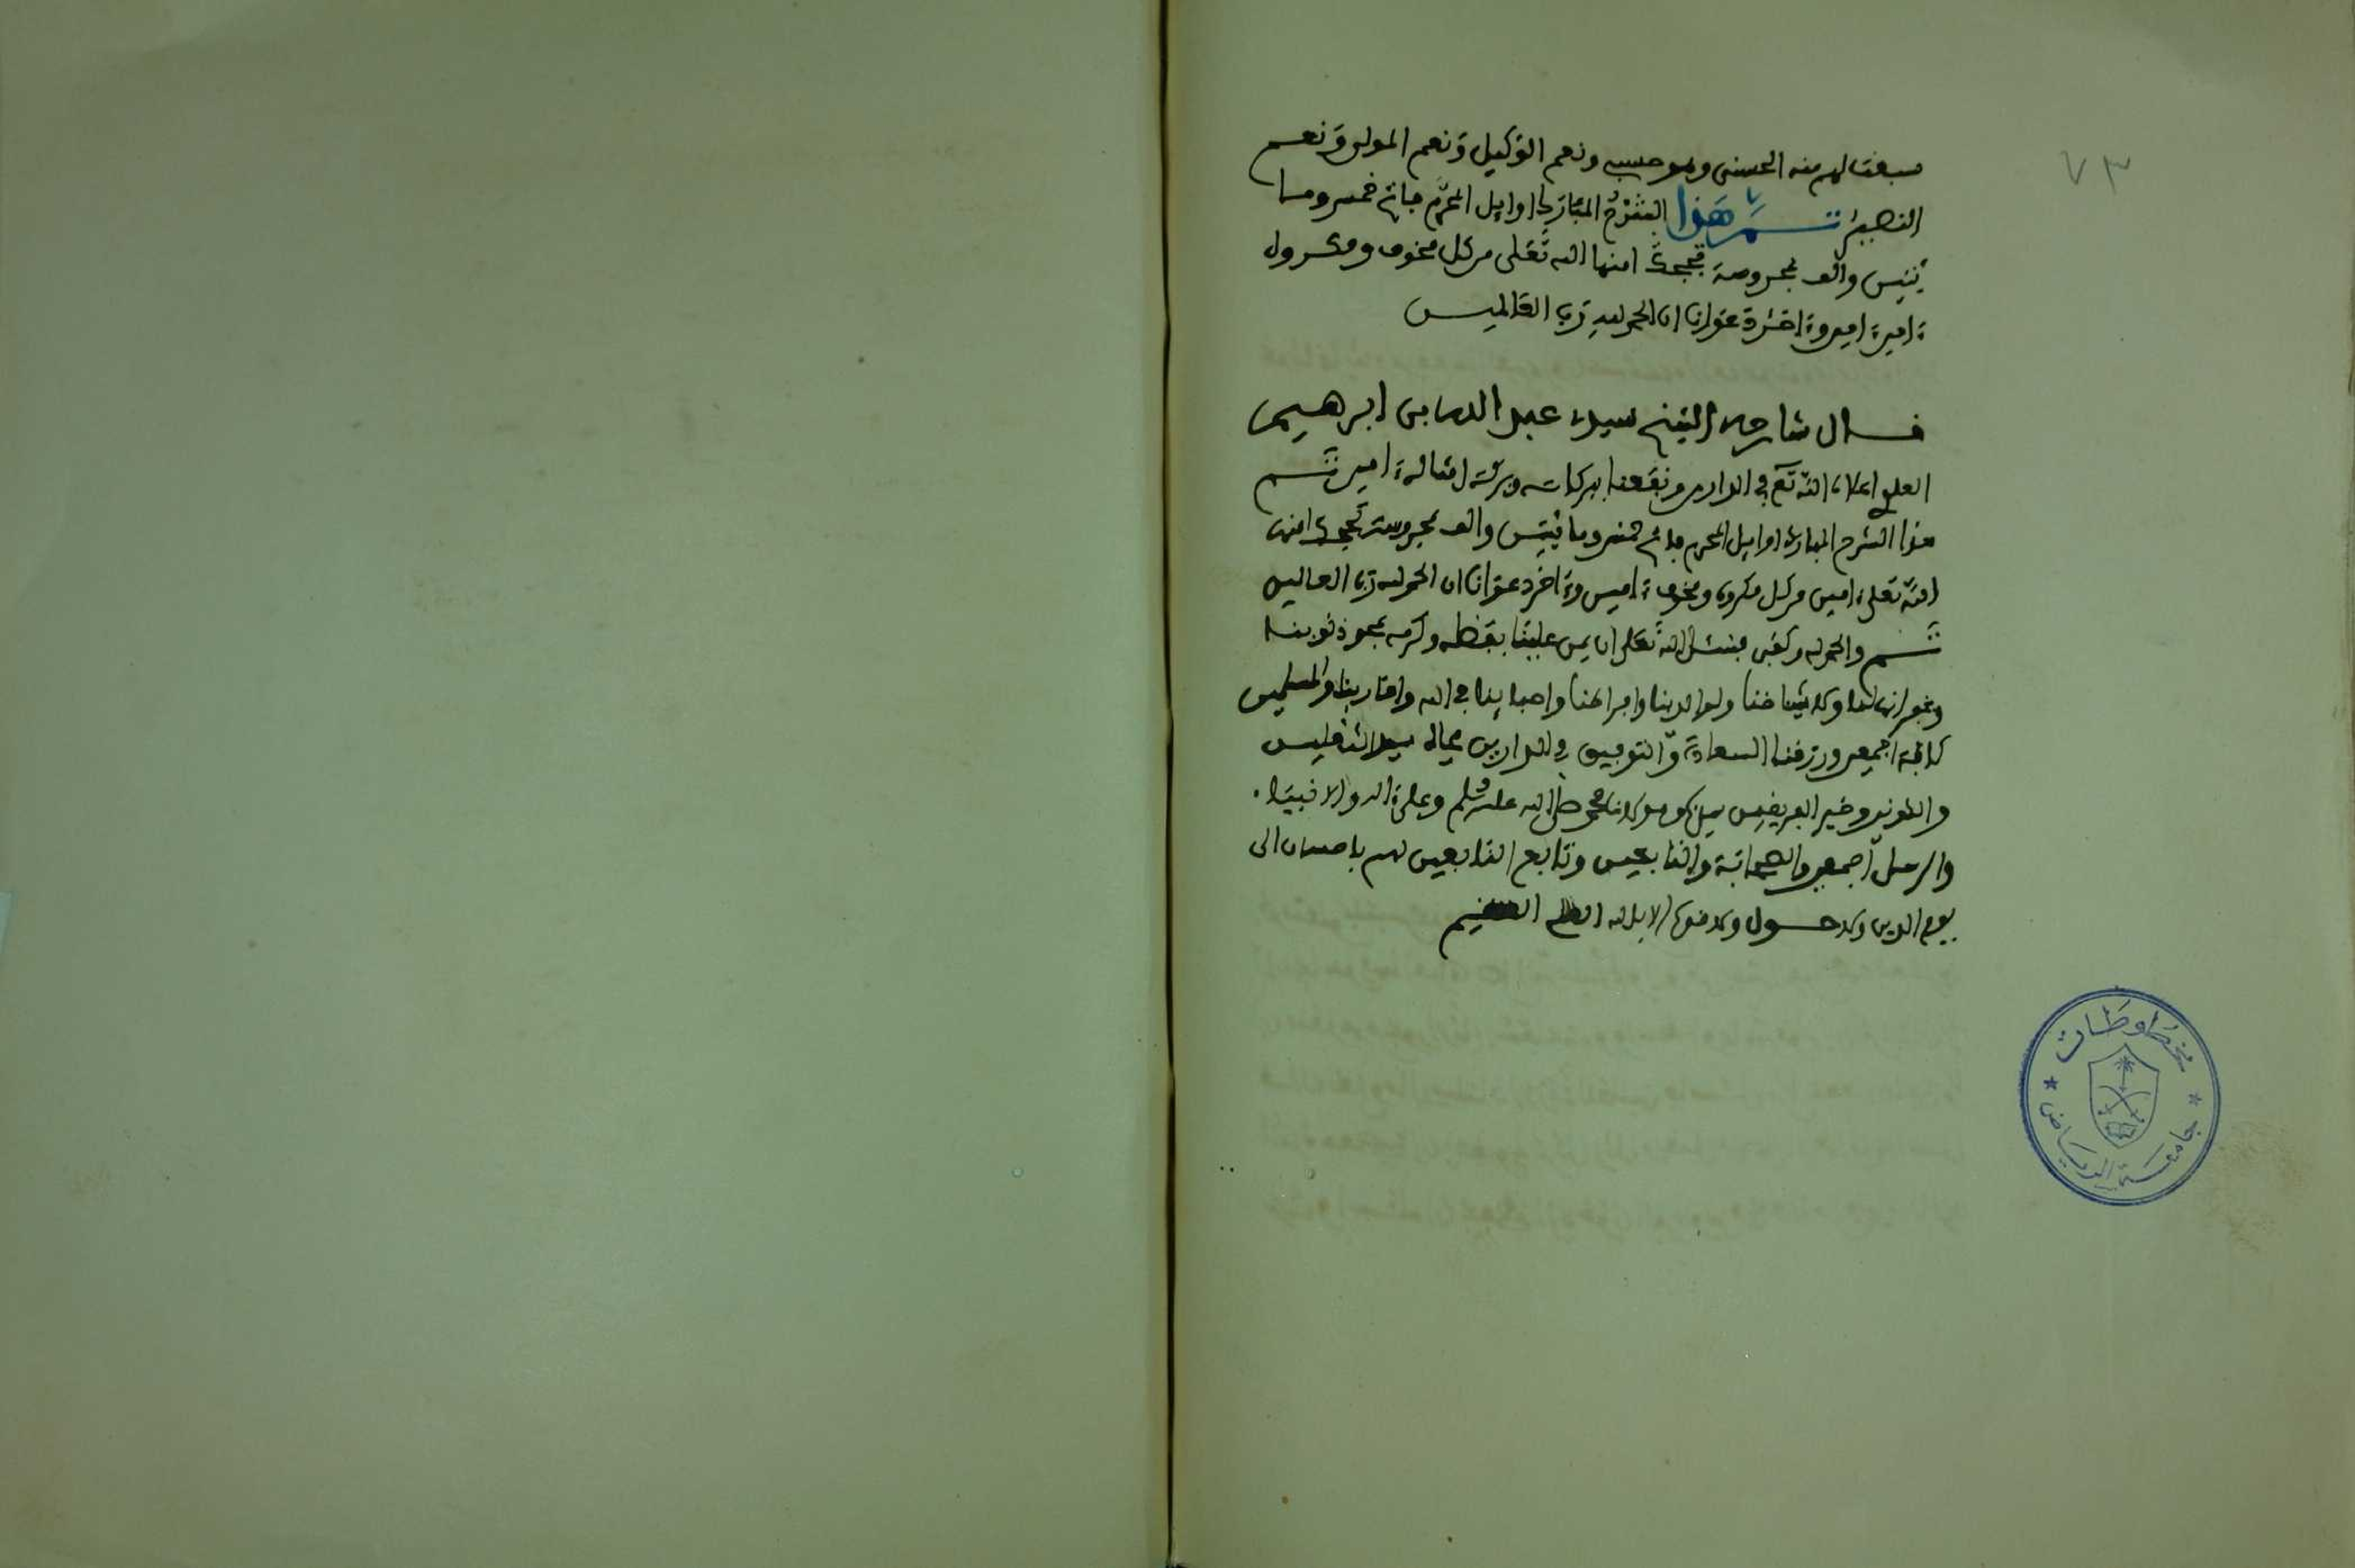 ٧٣
سبقت لهم منه الحسنى وهو حسبي ونعم الوكيل ونعم المولى ونعم
النصير تم هذا الشرح المبارك اوايل المحرم فاتح خمس وما
ئتين والف بمحروسة تججت امنها الله تعلى من كل مخوف ومكروه
ءامين ءامين وءاخر دعوانا ان الحمد لله رب العالمين
قال شارحه الشيخ سيد عبد الله بن ابرهيم
العلوي اعلاه الله تع في الدارين ونفعنا ببركاته وبركة امثاله ءامين تم
هذا الشرح المبارك اوايل المحرم فاتح خمس ومائتين والف بمحروسة تججت امنها
الله تعلى ءامين من كل مكروه ومخوف ءامين وءاخر دعوانا ان الحمد لله رب العالمين
تم والحمد لله وكفى فنسئل الله تعلى ان يمن علينا بفضله وكرمه بمحو ذنوبنا
وغفرانها لنا ولاشياخنا ولوالدينا واحبابنا في الله واقاربنا والمسلمين
كافة اجمعين ورزقنا السعادة والتوفيق في الدارين بجاه سيد الثقلين
والكونين وخير الفريقين سيدنا ومولانا محمد صلى الله عليه وسلم وعلى ءاله والانبياء
والرسل اجمعين والصحابة والتابعين وتابع التابعين لهم باحسان الى
يوم الدين ولا حول ولا قوة الا بالله العلي العظيم
مخطوطات
جامعة الرياض